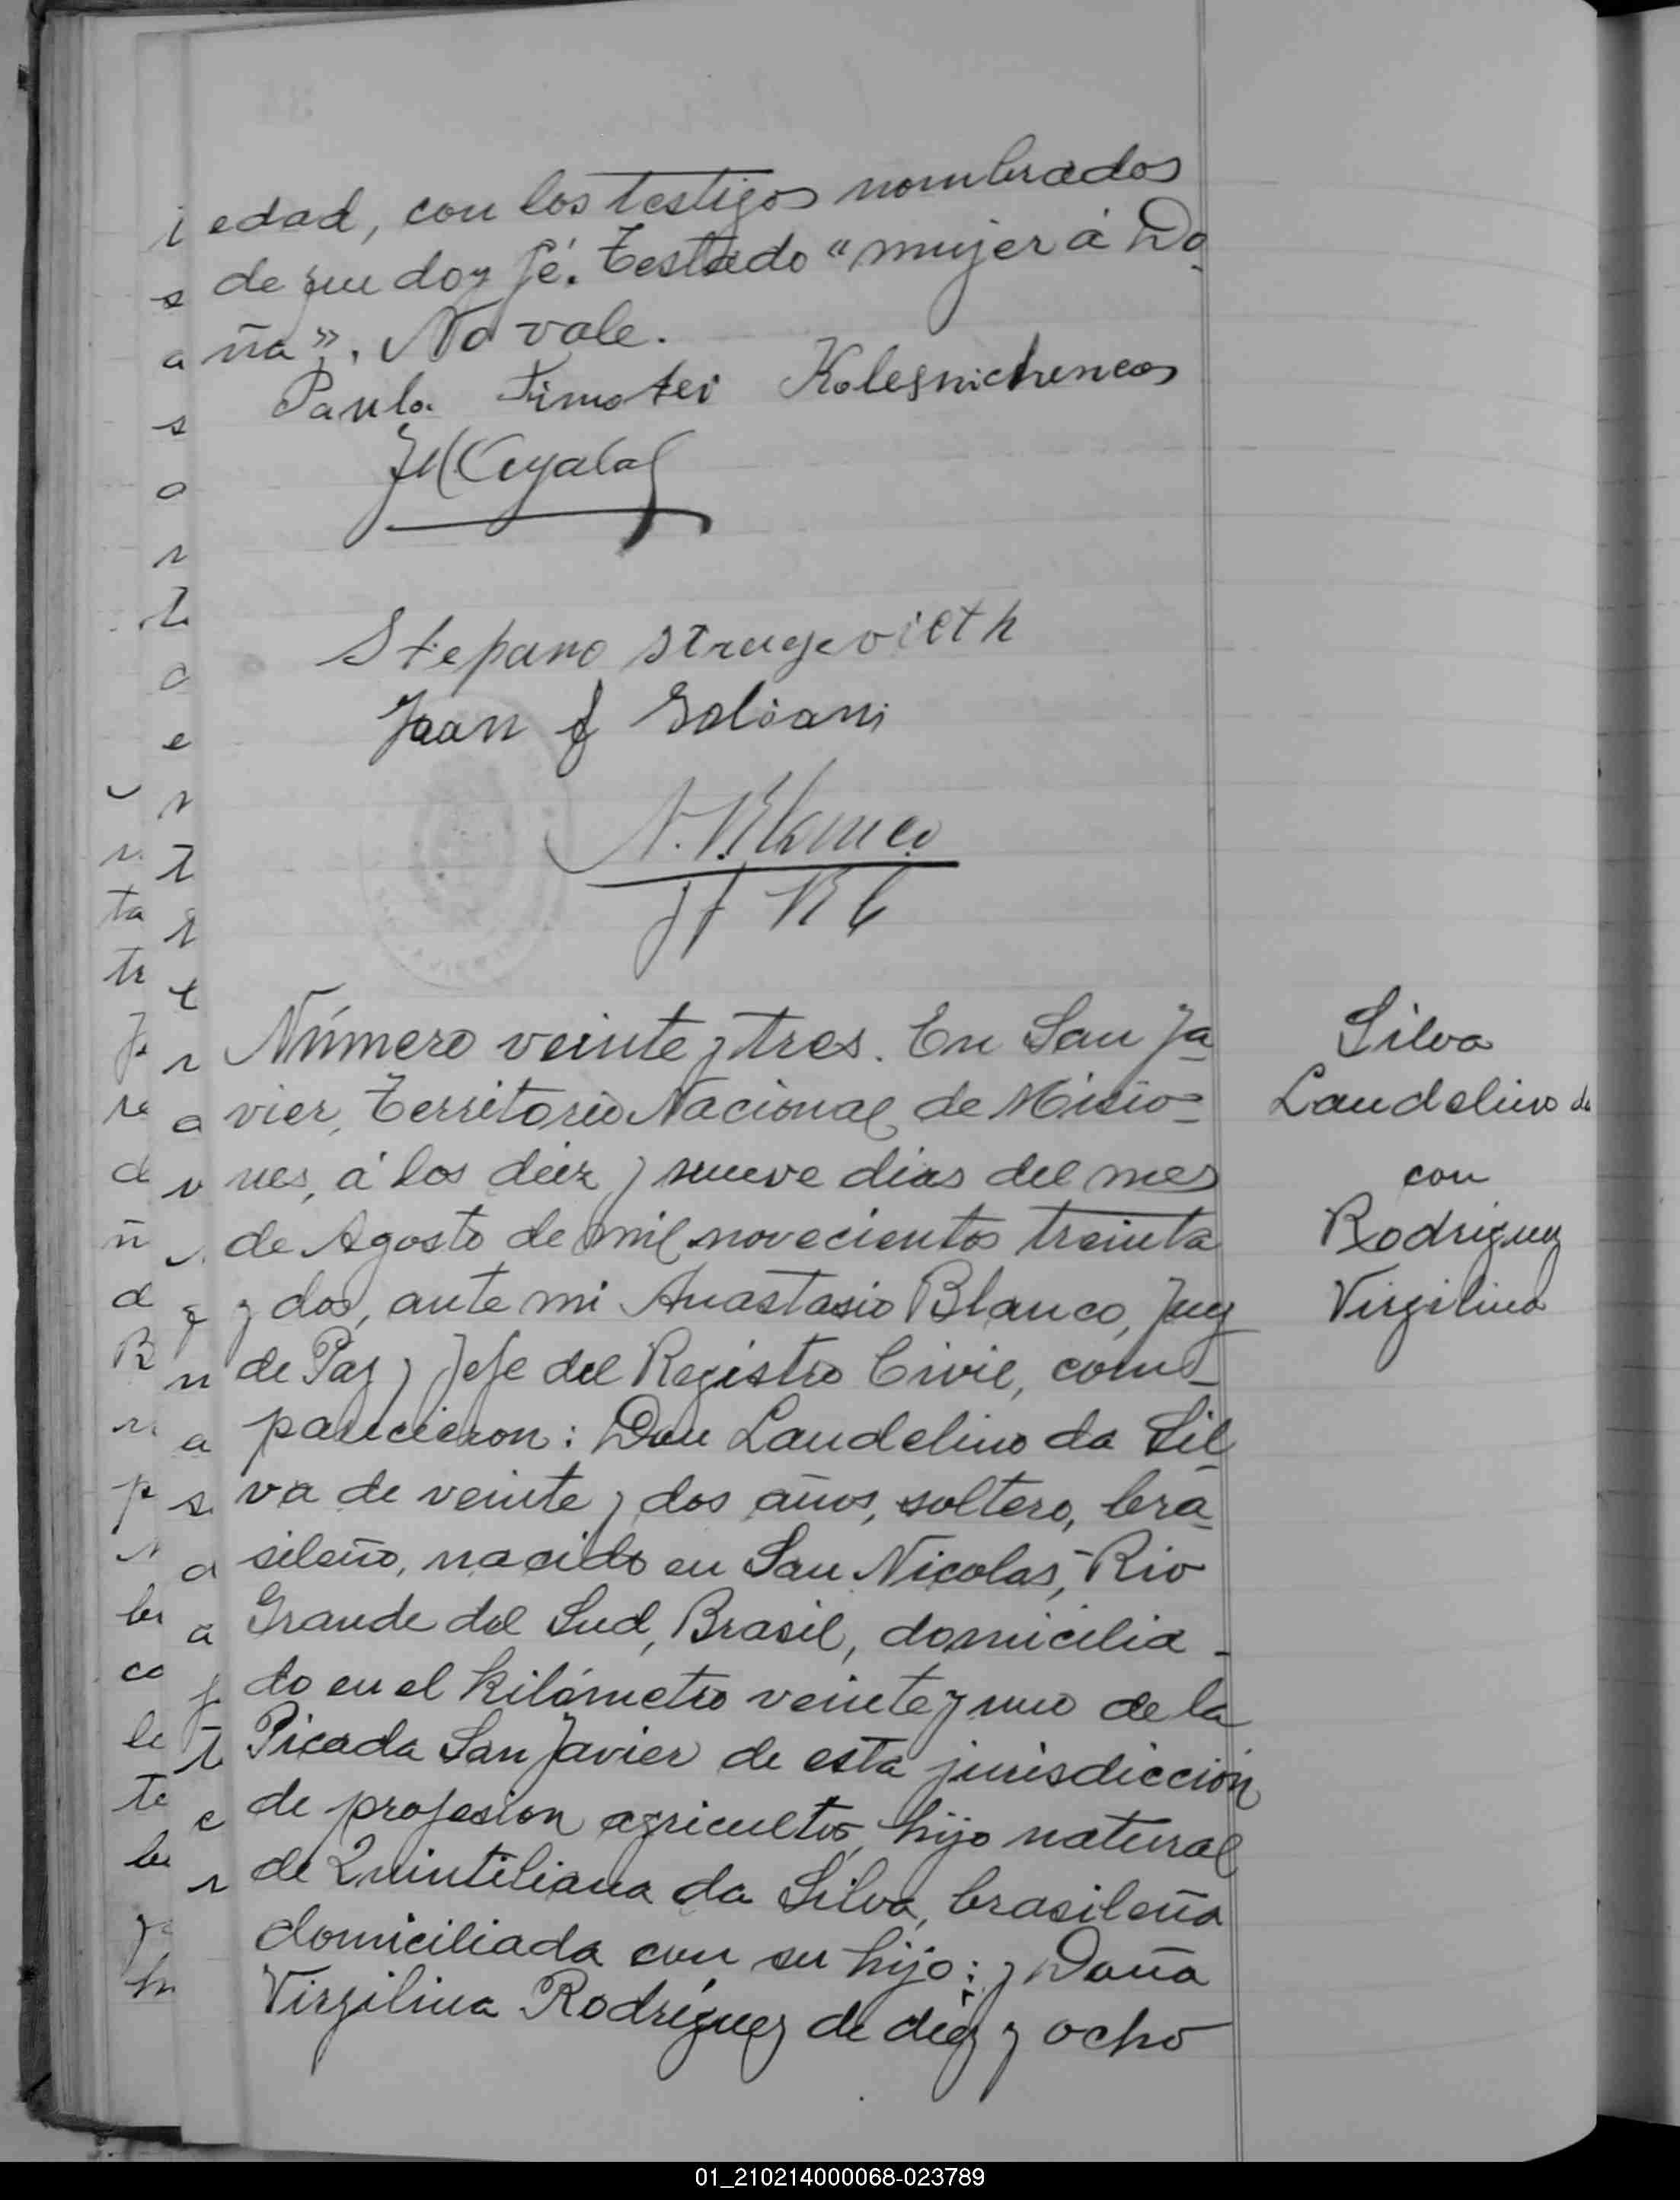 edad, con los testigos nombrados
de que doy fé. Testado "mujer á Do
ña". No vale.
Paula Timotei Kolesnichencos
Stepano
Juan J Galiani
A. Blanco
Número veinte y tres. En San Ja
vier, Territorio Nacional de Misio=
nes, á los diez y nueve dias del mes
de Agosto de mil novecientos treinta
y dos, ante mi Anastasio Blanco, Juez
de Paz y Jefe del Registro Civil, com-
parecieron: Don Laudelino da Sil
va de veinte y dos años, soltero, bra
sileño, nacido en San Nicolas, Rio
Grande del Sud, Brasil, domicilia-
do en el kilómetro veinte y uno de la
Picada San Javier de esta jurisdicción
de profesion agricultor, hijo natural
de Quintiliana da Silva, brasileña
domiciliada con su hijo: y Doña
Virgilina Rodríguez de diez y ocho
Silva
Laudelino da
con
Rodriguez
Virgilina
01_210214000068-023789